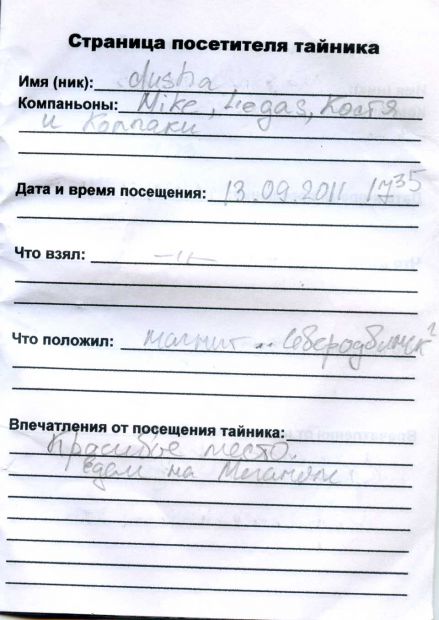 Страница посетителя тайника
Имя (ник): dusha
Компаньоны: Nike, Legas, Костя
и Колпаки
Дата и время посещения: 13.09.2011 17 35
Что взял: -"-
Что положил: магнит "Северодвинск"
Впечатления от посещения тайника:
Красивое место.
едем на Меганом